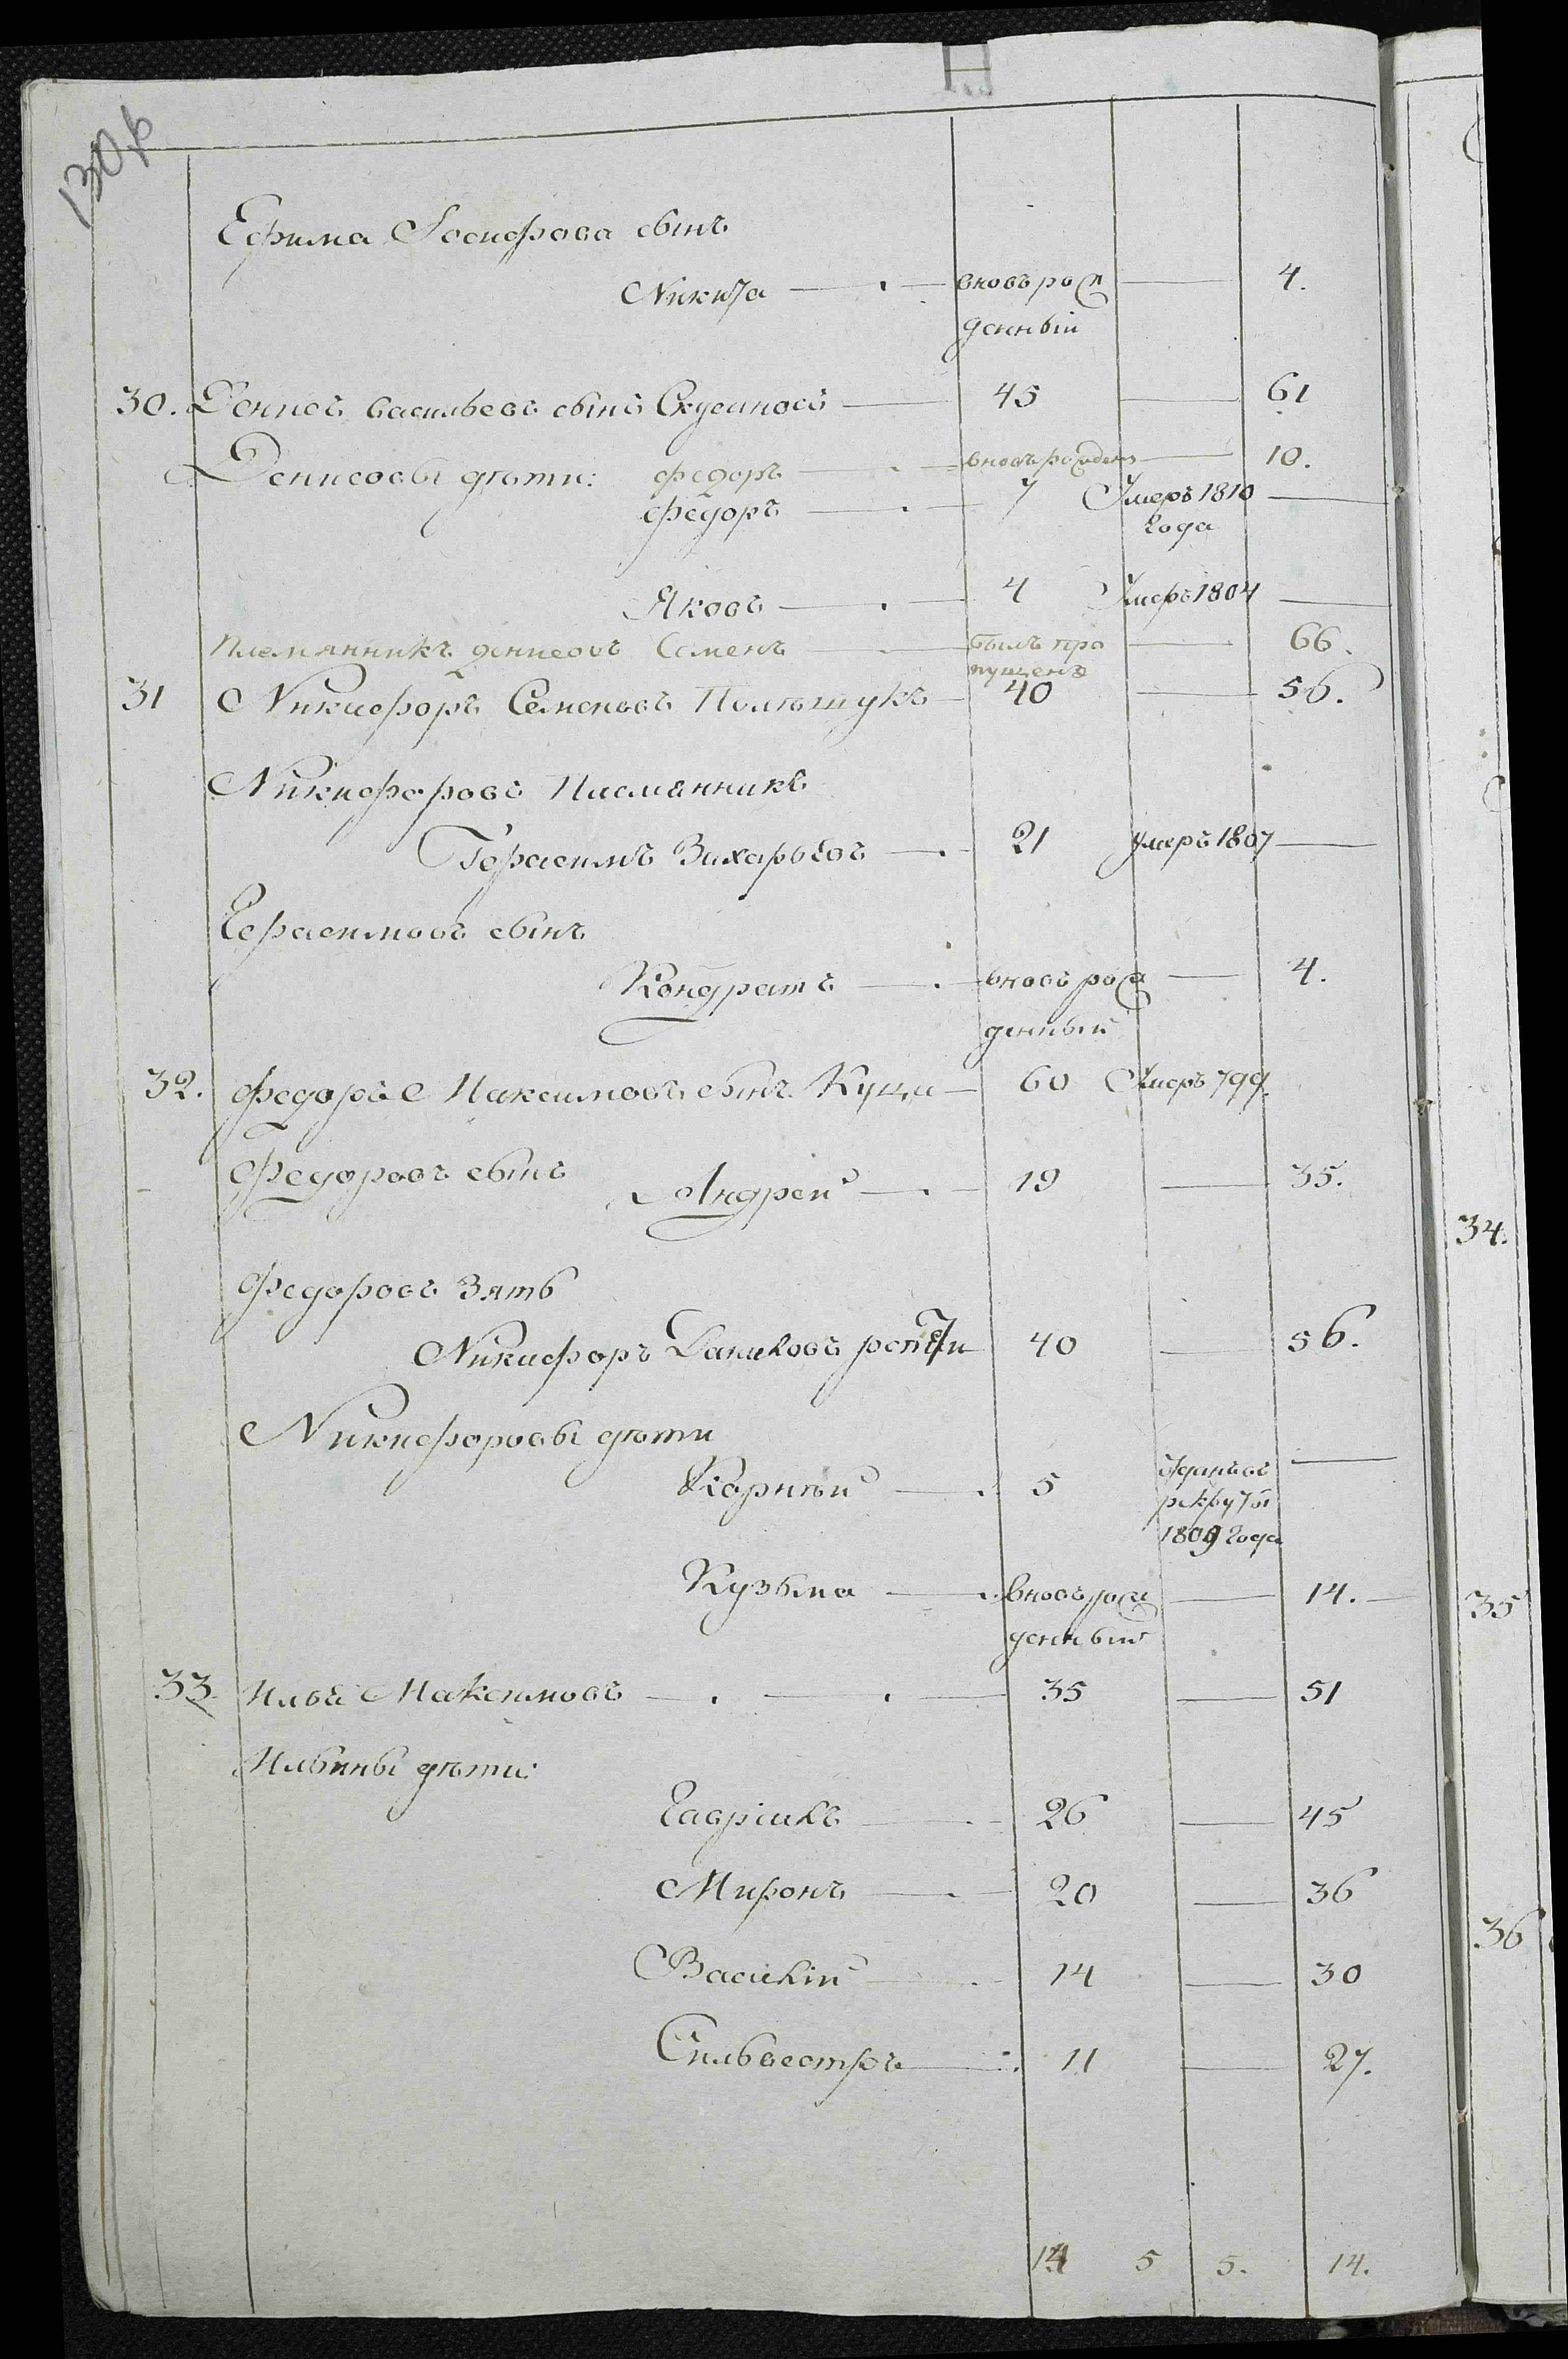 Ефима Іосифова сынъ
Никита вновь рож 4.
денный
30. Денисъ Васильевъ сынъ 45 61
Денисовы дѣти: Федоръ вновь рожден 10.
Федоръ 7 Умеръ 1810
года
Яковъ 4 Умеръ 1804
Племянникъ денисовъ Семенъ былъ про 66.
пущенъ
31 Никифоръ Семеновъ Полѣщукъ 40 56.
Никифоровъ племянникъ
Герасимъ Захарьевъ 21 умеръ 1807
Герасимовъ сынъ
Кондратъ вновь рож 4.
денный
32. Федоръ Максимовъ сынъ Куца 60 Умеръ 799.
Федоровъ сынъ
Андрей 19 35.
Федоровъ Зять
Никифоръ Даниловъ 40 56.
Никифоровы дѣти
Корнѣй 5 Отданъ въ
рекруты
1809 года
Кузьма вновь рож 14.
денный
33. Илья Максимовъ 35 51
Ильины дѣти:
Гаврилъ 26 45
Миронъ 20 36
Василій 14 30
Сильвестръ 11 27.
14 5 5. 14.
34.
35
36